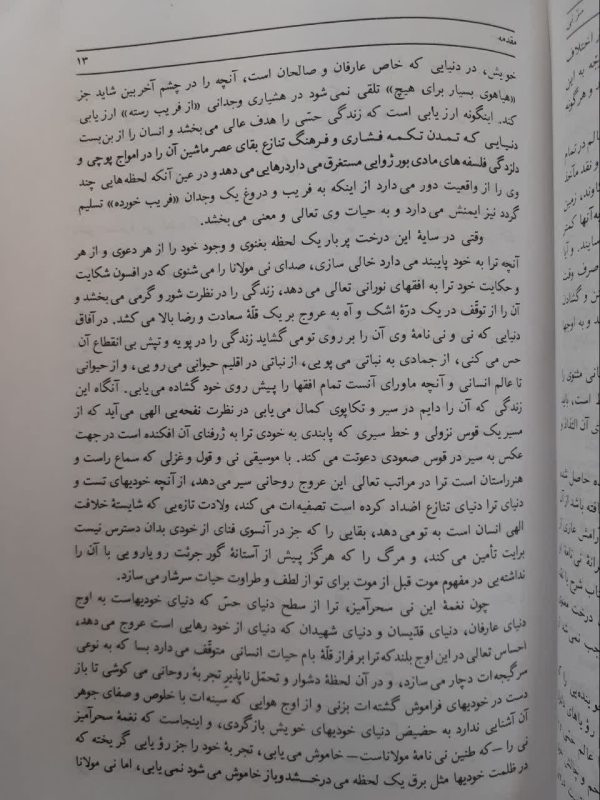 مقدمه
۱۳
خویش، در دنیایی که خاص عارفان و صالحان است، آنچه را در چشم آخربین شاید جز
«هیاهوی بسیار برای هیچ» تلقی نمی‌شود در هشیاری وجدانی «از فریب رسته» ارزیابی
کند. اینگونه ارزیابی است که زندگی حسّی را هدف عالی می‌بخشد و انسان را از بن‌بست
دنیایی که تمدن تکمه فشاری و فرهنگ تنازع بقای عصر ماشین آن را در امواج پوچی و
دلزدگی فلسفه‌های مادی بورژوایی مستغرق می‌دارد رهایی می‌دهد و در عین آنکه لحظه‌هایی چند
وی را از واقعیت دور می‌دارد از اینکه به فریب و دروغ یک وجدان «فریب خورده» تسلیم
گردد نیز ایمنش می‌دارد و به حیات وی تعالی و معنی می‌بخشد.
وقتی در سایهٔ این درخت پربار یک لحظه بغنوی و وجود خود را از هر دعوی و از هر
آنچه ترا به خود پایبند می‌دارد خالی سازی، صدای نی مولانا را می‌شنوی که در افسون شکایت
و حکایت خود ترا به افقهای نورانی تعالی می‌دهد، زندگی را در نظرت شور و گرمی می‌بخشد و
آن را از توقّف در یک درّهٔ اشک و آه به عروج بر یک قلّهٔ سعادت و رضا بالا می‌کشد. در آفاق
دنیایی که نی و نی‌نامهٔ وی آن را بر روی تو می‌گشاید زندگی را در پویه و تپش بی‌انقطاع آن
حس می‌کنی، از جمادی به نباتی می‌پویی، از نباتی در اقلیم حیوانی می‌رویی، و از حیوانی
تا عالم انسانی و آنچه ماورای آنست تمام افقها را پیش روی خود گشاده می‌یابی. آنگاه این
زندگی که آن را دایم در سیر و تکاپوی کمال می‌یابی در نظرت نفحه‌یی الهی می‌آید که از
مسیر یک قوس نزولی و خط سیری که پابندی به خودی ترا به ژرفنای آن افکنده است در جهت
عکس به سیر در قوس صعودی دعوتت می‌کند. با موسیقی نی و قول و غزلی که سماع راست و
هنر راستان است ترا در مراتب تعالی این عروج روحانی سیر می‌دهد، از آنچه خودیهای تست و
دنیای ترا دنیای تنازع اضداد کرده است تصفیه‌ات می‌کند، ولادت تازه‌یی که شایستهٔ خلافت
الهی انسان است به تو می‌دهد، بقایی را که جز در آنسوی فنای از خودی بدان دسترس نیست
برایت تأمین می‌کند، و مرگ را که هرگز پیش از آستانهٔ گور جرئت رویارویی با آن را
نداشته‌یی در مفهوم موت قبل از موت برای تو از لطف و طراوت حیات سرشار می‌سازد.
چون نغمهٔ این نی سحرآمیز، ترا از سطح دنیای حسّ که دنیای خودیهاست به اوج
دنیای عارفان، دنیای قدّیسان و دنیای شهیدان که دنیای از خود رهایی است عروج می‌دهد،
احساس تعالی در این اوج بلند که ترا بر فراز قلّهٔ بام حیات انسانی متوقّف می‌دارد بسا که به نوعی
سرگیجه‌ات دچار می‌سازد، و در آن لحظهٔ دشوار و تحمّل‌ناپذیر تجربهٔ روحانی می‌کوشی تا باز
دست در خودیهای فراموش گشته‌ات بزنی و از اوج هوایی که سینه‌ات با خلوص و صفای جوهر
آن آشنایی ندارد به حضیض دنیای خودیهای خویش بازگردی، و اینجاست که نغمهٔ سحرآمیز
نی را —که طنین نی‌نامهٔ مولاناست— خاموش می‌یابی، تجربهٔ خود را جز رؤیایی گریخته که
در ظلمت خودیها مثل برق یک لحظه می‌درخشد و باز خاموش می‌شود نمی‌یابی، اما نی مولانا